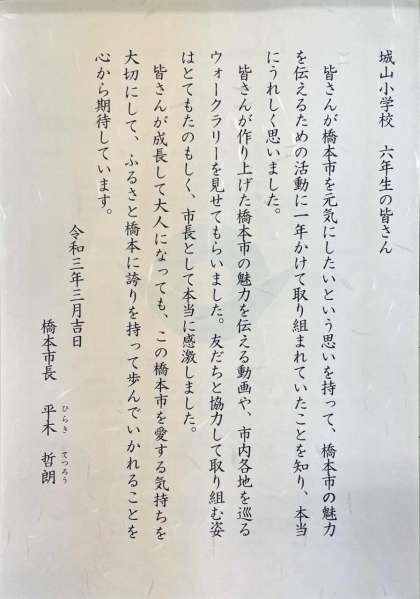 城山小学校　六年生の皆さん
　皆さんが橋本市を元気にしたいという思いを持って、橋本市の魅力
を伝えるための活動に一年かけて取り組まれていたことを知り、本当
にうれしく思いました。
　皆さんが作り上げた橋本市の魅力を伝える動画や、市内各地を巡る
ウォークラリーを見せてもらいました。友だちと協力して取り組む姿
はとてもたのもしく、市長として本当に感激しました。
　皆さんが成長して大人になっても、この橋本市を愛する気持ちを
大切にして、ふるさと橋本に誇りを持って歩んでいかれることを
心から期待しています。
令和三年三月吉日
橋本市長　平木　哲朗
ひらき　てつろう